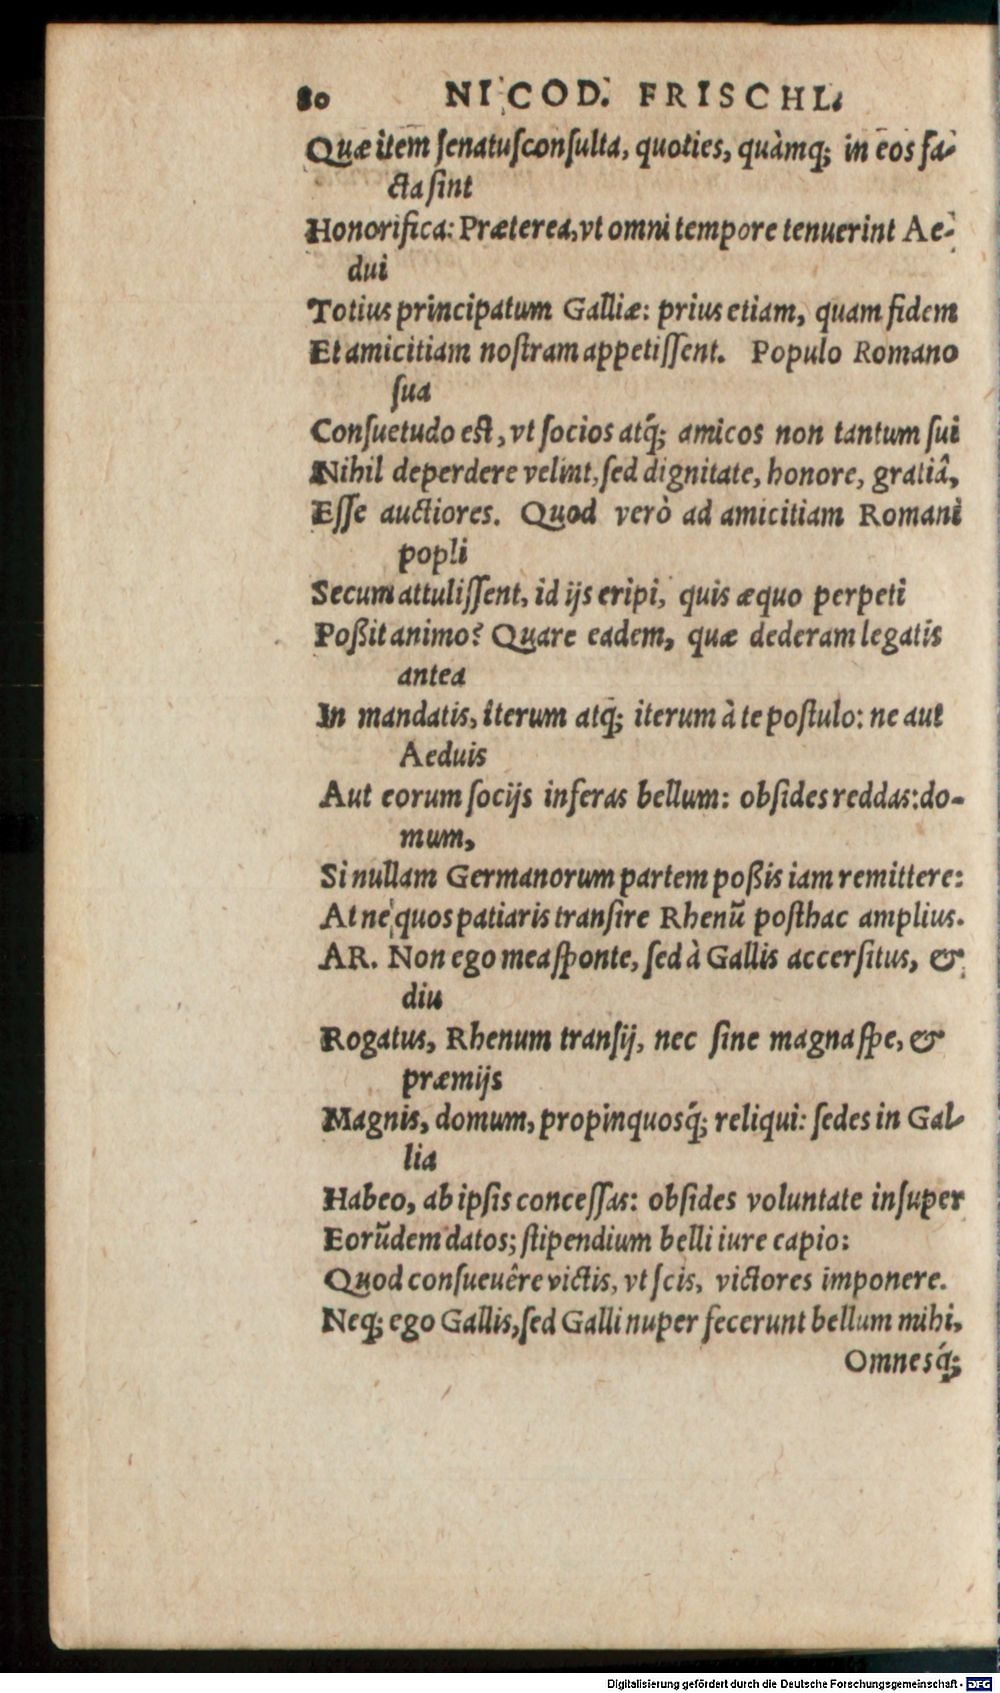 80 NICOD. FRISCHL.
Quæ item ſenatuſconſulta, quoties, quàmq; in eos fa-
cta ſint
Honorifica: Præterea, vt omni tempore tenuerint Ae-
dui
Totius principatum Galliæ: prius etiam, quam fidem
Et amicitiam noſtram appetiſſent. Populo Romano
ſua
Conſuetudo eſt, vt ſocios atq́; amicos non tantum ſui
Nihil deperdere velint, ſed dignitate, honore, gratiâ,
Eſſe auctiores. Quod verò ad amicitiam Romani
popli
Secum attuliſſent, id ijs eripi, quis æquo perpeti
Poßit animo? Quare eadem, quæ dederam legatis
antea
In mandatis, iterum atq́; iterum à te poſtulo: ne aut
Aeduis
Aut eorum ſocijs inferas bellum: obſides reddas: do-
mum,
Si nullam Germanorum partem poßis iam remittere:
At ne quos patiaris tranſire Rhenũ poſthac amplius.
AR. Non ego mea ſponte, ſed à Gallis accerſitus, &
diu
Rogatus, Rhenum tranſij, nec ſine magna ſpe, &
præmijs
Magnis, domum, propinquosq́; reliqui: ſedes in Gal-
lia
Habeo, ab ipſis conceſſas: obſides voluntate inſuper
Eorũdem datos; ſtipendium belli iure capio:
Quod conſueuêre victis, vt ſcis, victores imponere.
Neq; ego Gallis, ſed Galli nuper fecerunt bellum mihi,
Omnesq́;
Digitalisierung gefördert durch die Deutsche Forschungsgemeinschaft - DFG